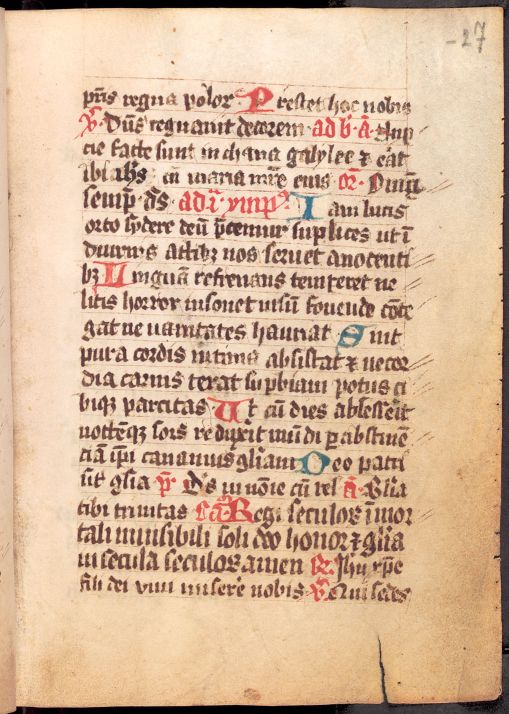 -27
pr̄is regna polor P restet hoc nobis
V̄ Dn̄s regnavit decorem ad b̄ a̅ Nup
cie facte sunt in chana galylee & erat
ibi ih̄s cu maria mr̄e eius or̄ Omp̄
semp̄ ds̄ ad i ymp̄ I am lucis
orto sydere deū p̄cemur suplices ut ī
diurnis actibz nos servet a nocenti
bz L inguā refrenans temperet ne
litis horror insonet visū fovendo cōte
gat ne vanitates hauriat S int
pura cordis intima absistat & vecor
dia carnis terat supbiam potus ci
biqz parcitas U t cū dies abscesserit
noctēqz sors reduxerit mūdi p abstinē
ciā ip̄i canamus gl̄iam D eo patri
sit gl̄ia p̄ Ds̄ in nōie a̅ Gl̄ia
tibi trinitas ca̅ R egi seculor īmor
tali invisibili soli deo honor & gl̄ia
in secula seculor amen R̄ Ihu xp̄e
fili dei vivi miserere nobis V̄ Qui sedes